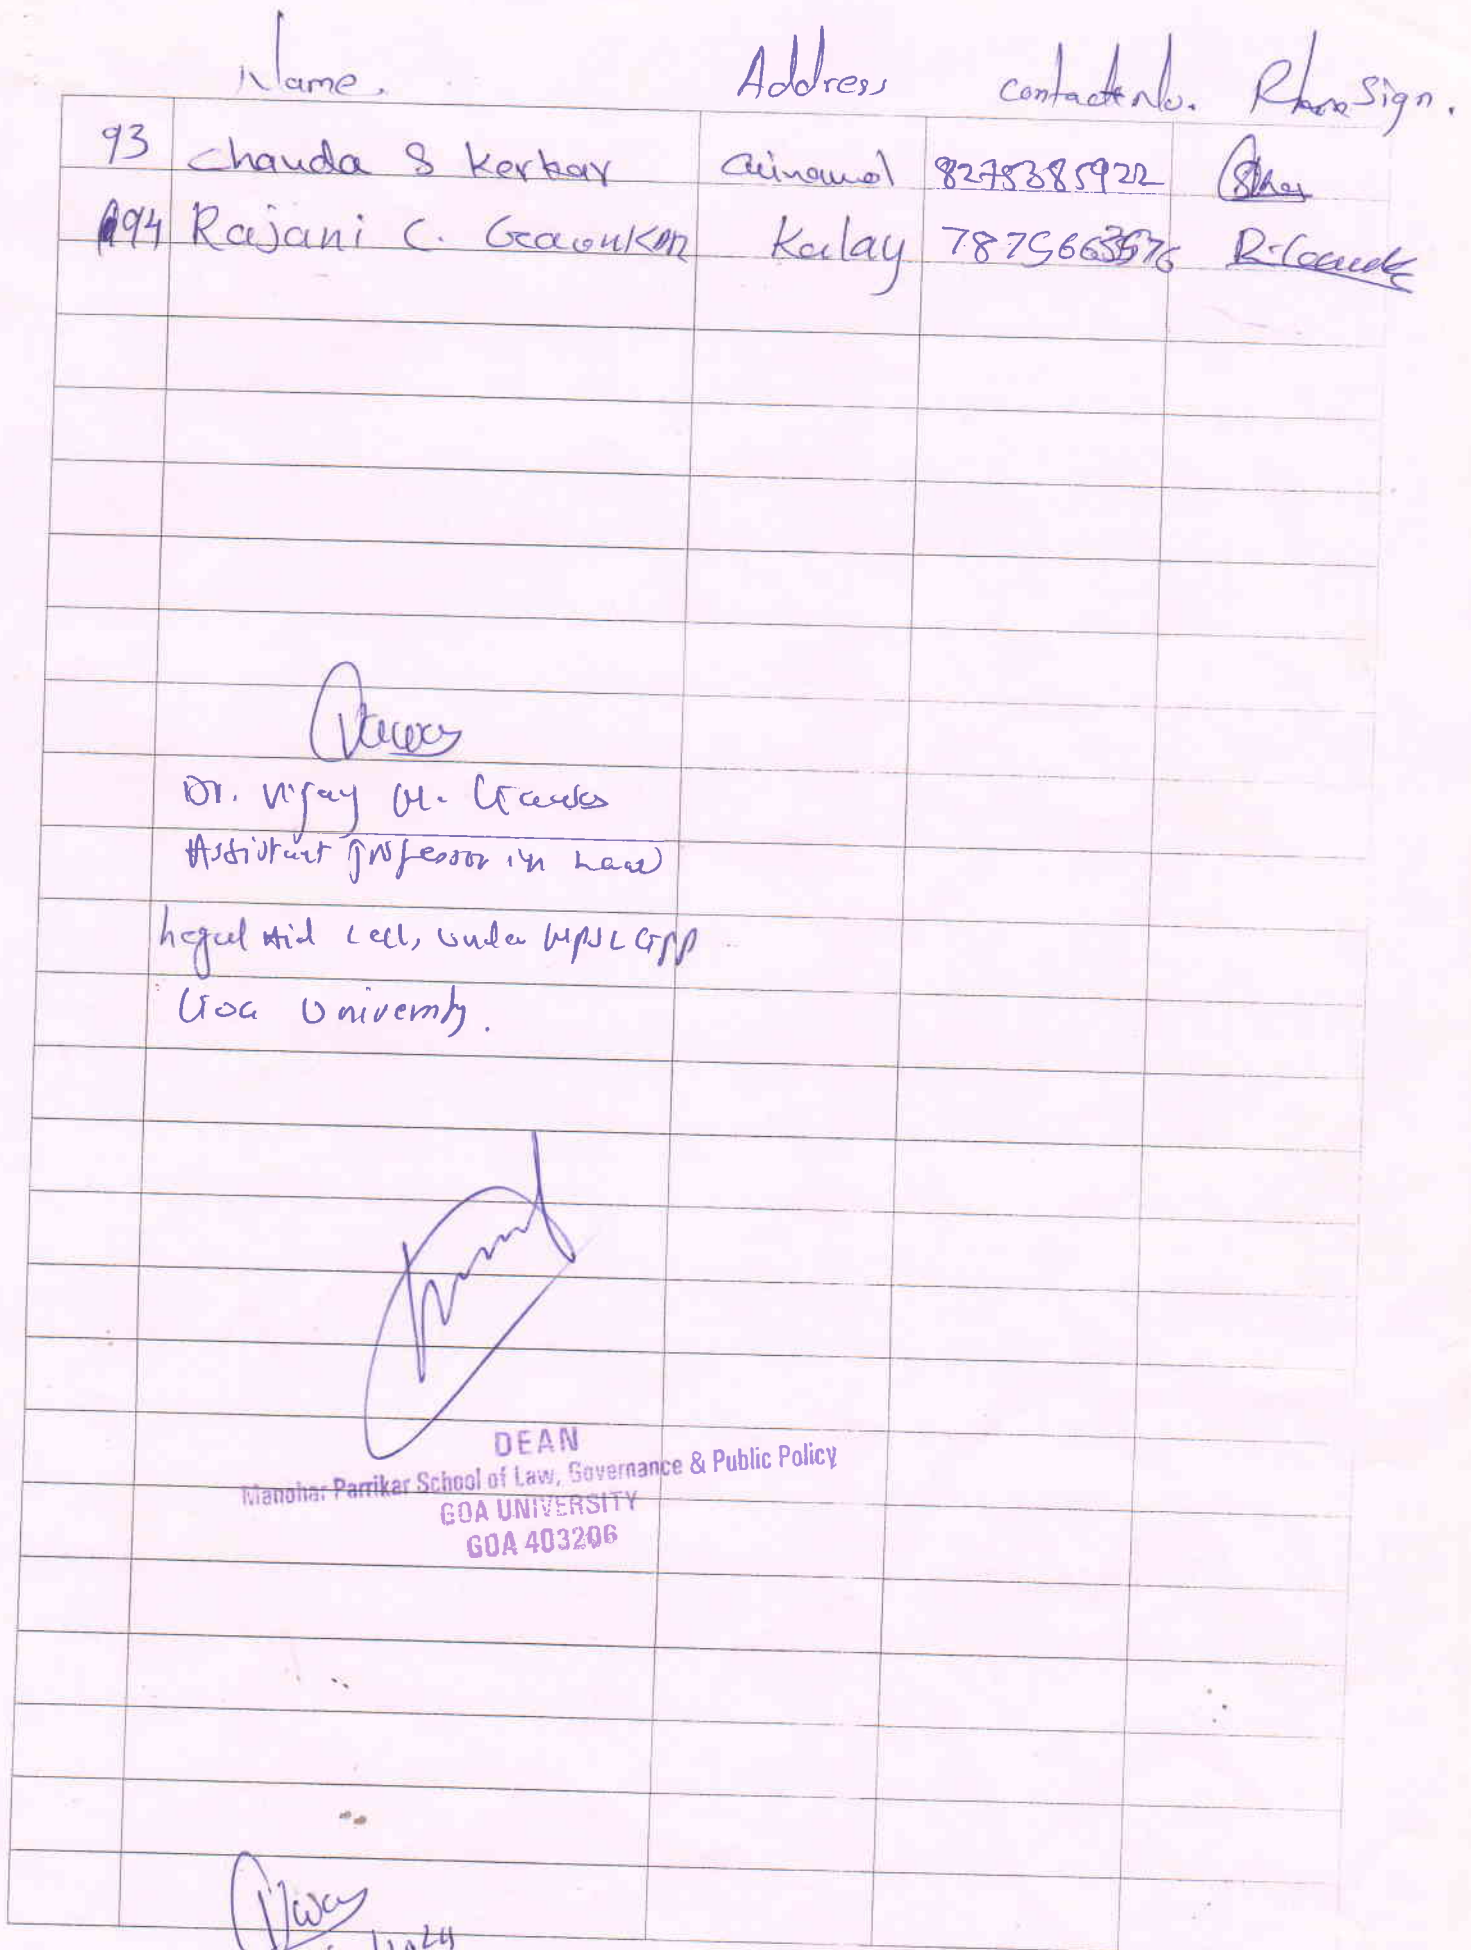 Name. Address contact No. Sign.
93 Chanda S Kerkar 8275385922
94 Rajani C. Gaounkar Kalay 
Dr. Vijay M. Gawas
Assistant professor in Law
Legal Aid Cell, under MPSLGPP
Goa University.
DEAN
Manohar Parrikar School of Law, Governance & Public Policy
GOA UNIVERSITY
GOA 403206